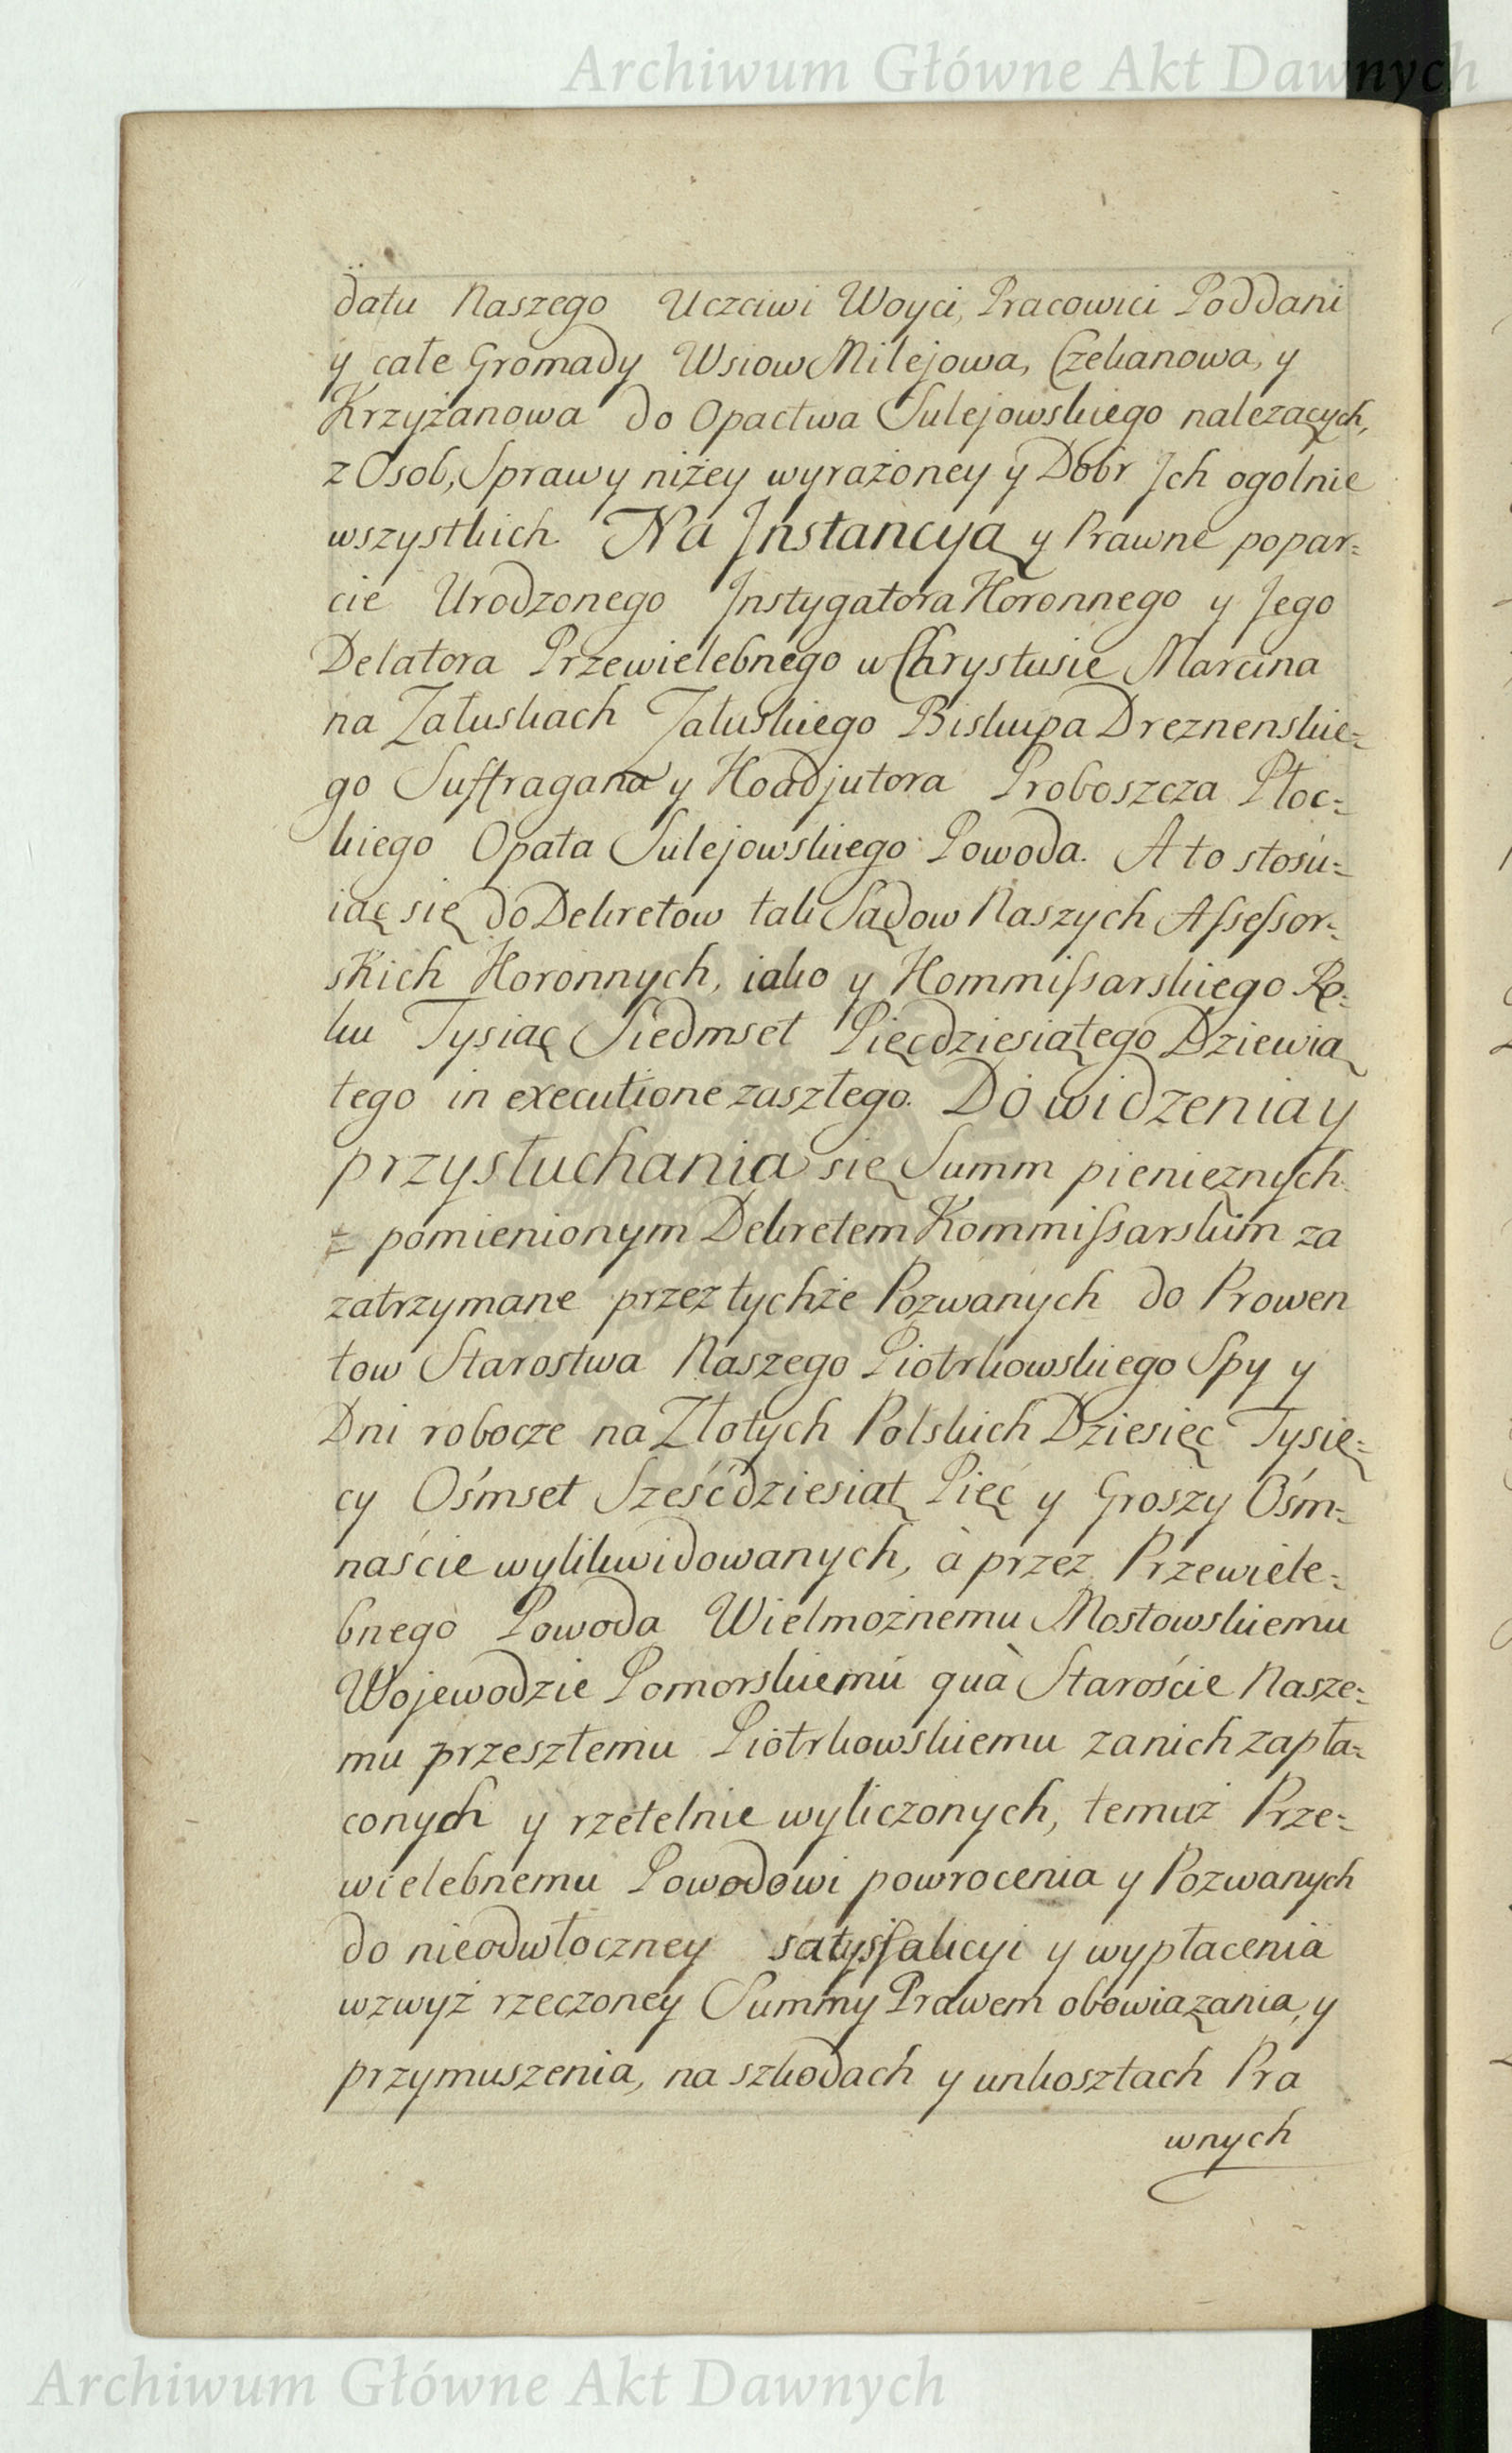 Archiwum Główne Akt Dawnych
datu Naszego Uczciwi Woyci, Pracowici Poddani
y całe Gromady Wsiow Milejowa, Czekanowa, y
Krzyżanowa do Opactwa Sulejowskiego należących,
z Osob, Sprawy niżey wyrażoney y Dobr Ich ogolnie
wszystkich. Na Instancyą y Prawne popar=
cie Urodzonego Instygatora Koronnego y Jego
Delatora Przewielebnego w Chrystusie Marcina
na Załuskach Załuskiego Biskupa Dreznenskie=
go Suffragana y Koadjutora Proboszcza Płoc=
kiego Opata Sulejowskiego Powoda. A to stosu=
iąc się do Dekretow tak Sądow Naszych Assessor=
skich Koronnych, iako y Kommissarskiego Ro=
ku Tysiąc Siedmset Pięcdziesiątego Dziewią
tego in executione zaszłego. Do widzenia y
przysłuchania się Summ pieniężnych
z pomienionym Dekretem Kommissarskim za
zatrzymane przez tychże Pozwanych do Prowen
tow Starostwa Naszego Piotrkowskiego Spy y
Dni robocze na Złotych Polskich Dziesięc Tysię=
cy Ośmset Sześćdziesiąt Pięć y Groszy Ośm=
naście wylikwidowanych, à przez Przewiele=
bnego Powoda Wielmożnemu Mostowskiemu
Wojewodzie Pomorskiemu quà Staroście Nasze=
mu przeszłemu Piotrkowskiemu za nich zapła=
conych y rzetelnie wyliczonych, temuż Prze=
wielebnemu Powodowi powrocenia y Pozwanych
do nieodwłoczney satysfakcyi y wypłacenia
wzwyż rzeczoney Summy Prawem obowiązania, y
przymuszenia, na szkodach y unkosztach Pra
wnych
Archiwum Główne Akt Dawnych